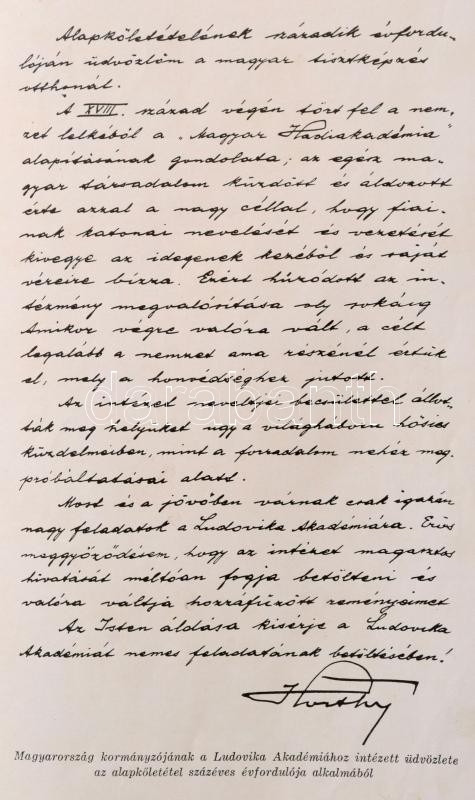 Alapkőletételének századik évfordu-
lóján üdvözlöm a magyar tisztképzés
otthonát.
A XVIII. század végén tört fel a nem-
zet lelkéből a „Magyar Hadiakadémia"
alapításának gondolata; az egész ma-
gyar társadalom küzdött és áldozott
érte azzal a nagy céllal, hogy fiai-
nak katonai nevelését és vezetését
kivegye az idegenek kezéből és saját
véreire bízza. Ezért húzódott az in-
tézmény megvalósítása oly sokáig
Amikor végre valóra vált, a célt
legalább a nemzet ama részénél értük
el, mely a honvédséghez jutott.
Az intézet neveltjei becsülettel állot-
ták meg helyüket úgy a világháború hősies
küzdelmeiben, mint a forradalom nehéz meg-
próbáltatásai alatt.
Most és a jövőben várnak csak igazán
nagy feladatok a Ludovika Akadémiára. Erős
meggyőződésem, hogy az intézet magasztos
hivatását méltóan fogja betölteni és
valóra váltja hozzáfűzött reményeimet
Az Isten áldása kisérje a Ludovika
Akadémiát nemes feladatának betöltésében!
Horthy
Magyarország kormányzójának a Ludovika Akadémiához intézett üdvözlete
az alapkőletétel százéves évfordulója alkalmából
darabanth